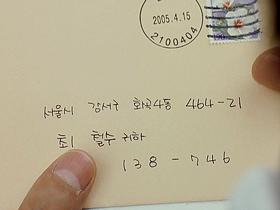 2005.4.15
2100404
서울시 강서구 화곡4동 464-21
최 철수 귀하
138-746